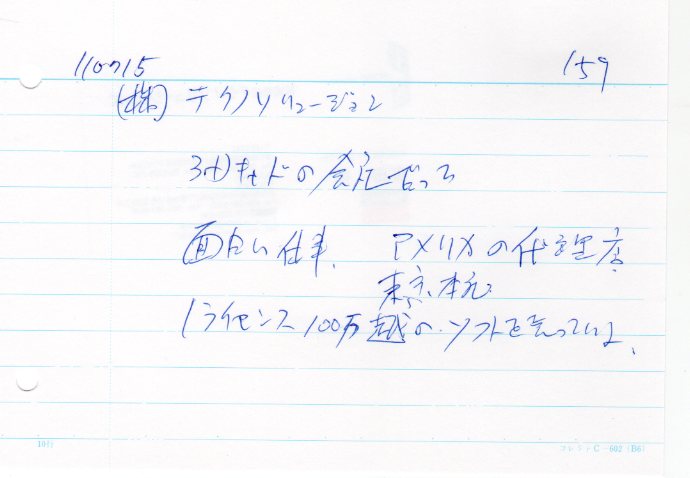 110715 159
(株) テクノソリュージョン
3Dキャドの会社だって
面白い仕事、 アメリカの代理店
東京本社
1ライセンス100万越のソフトを売っている、
10行 コレクト C-602 (B6)